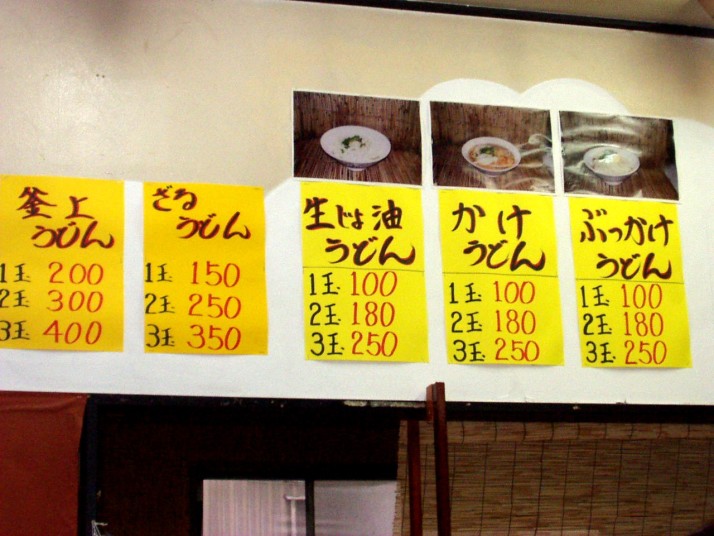 釜上
うどん
1玉 200
2玉 300
3玉 400
ざる
うどん
1玉 150
2玉 250
3玉 350
生じょ油
うどん
1玉 100
2玉 180
3玉 250
かけ
うどん
1玉 100
2玉 180
3玉 250
ぶっかけ
うどん
1玉 100
2玉 180
3玉 250